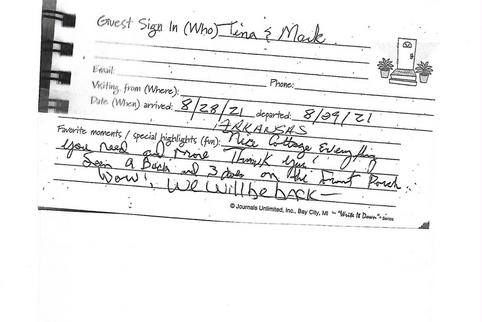 Guest Sign In (Who) Tina & Mark
Email:
Phone:
Visiting from (Where):
Date (When) arrived: 8/28/21 departed: 8/29/21
ARKANSAS
Favorite moments / special highlights (fun): Nice Cottage Everything
you need and more Thank you!
Seen a Buck and 3 does on the Front Porch.
Wow! We will be back
© Journals Unlimited, Inc., Bay City, MI ~ "Write It Down"~ Series